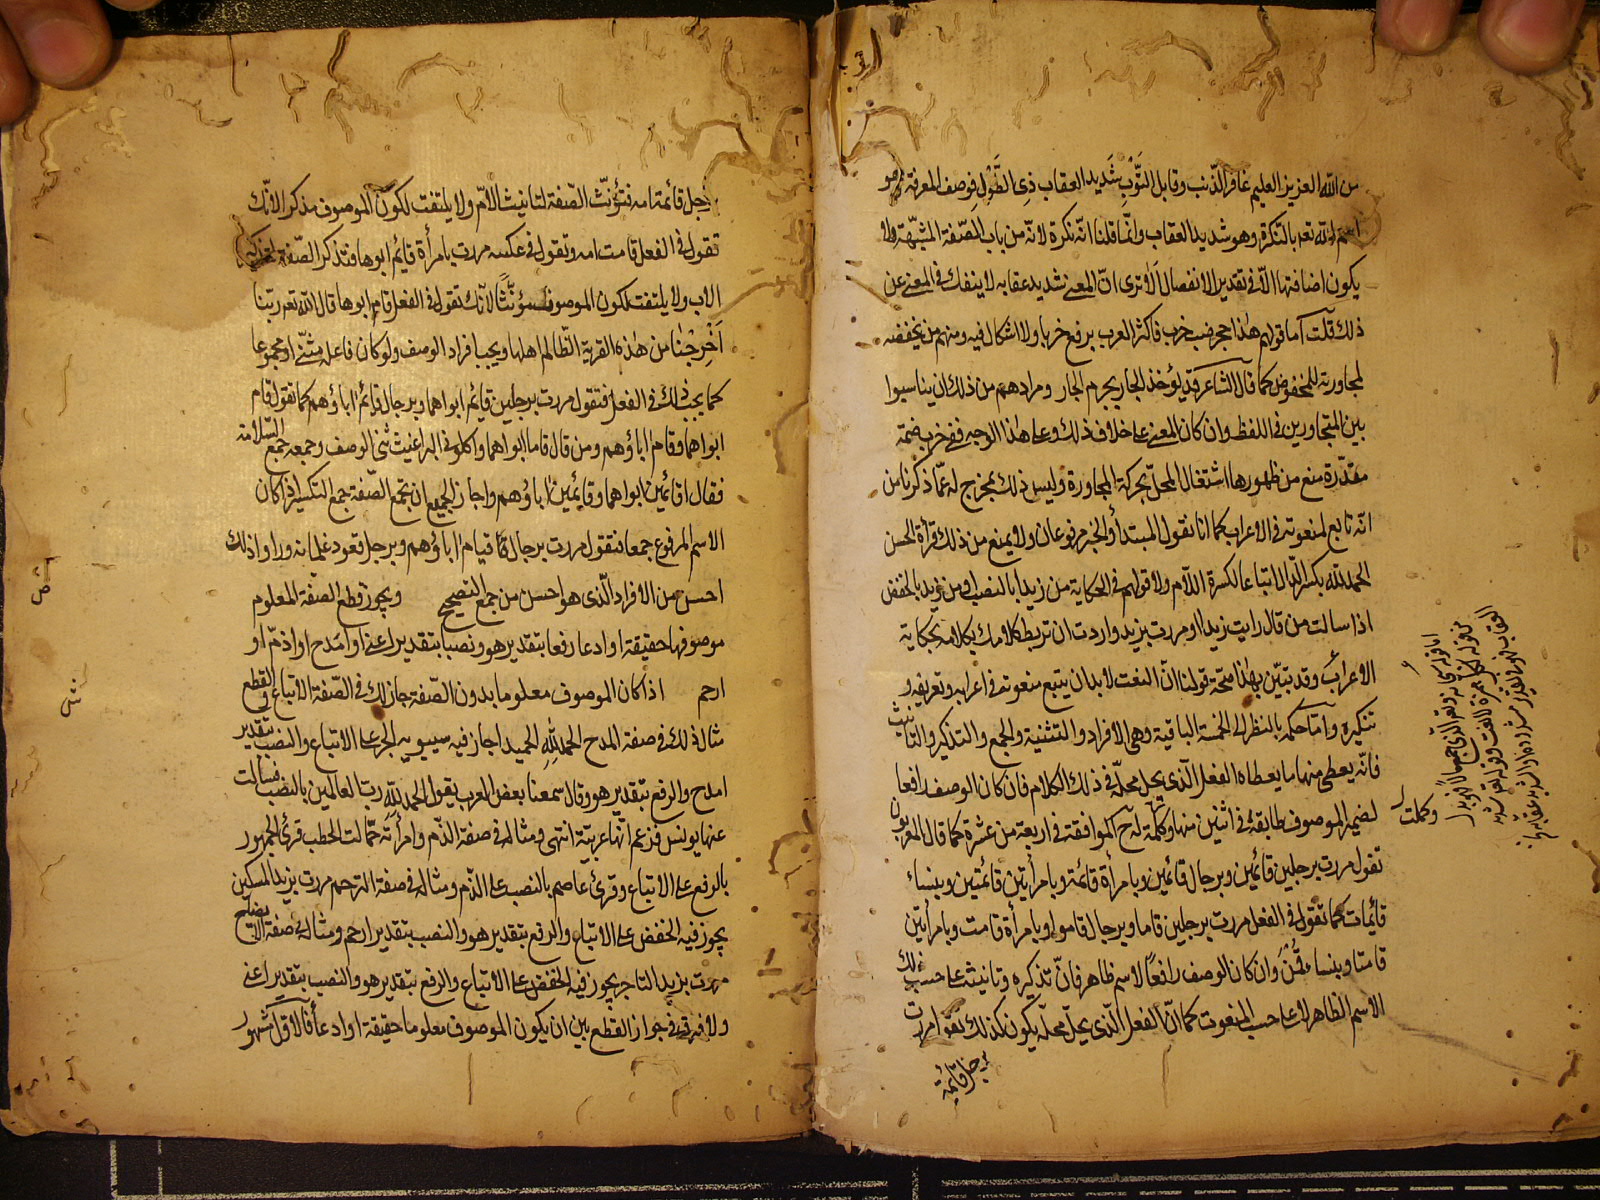 من الله العزيز العليم غافر الذّنب وقابل التّوب شديد العقاب ذي الطّول فوصف المعرفة وهو
اسم الله تعم بالنكرة وهو شديد العقاب وانّما قلنا انّه نكرة لانّه من باب الصّفة المشبّهة ولا
يكون اضافتها الّا في تقدير الانفصال الا ترى انّ المعنى شديد عقابه لا ينفك في المعنى عن
ذلك قلت اما قولهم هذا حجر ضب خرب فاكثر العرب يرفع خربا ولا اشكال فيه ومنهم من يخفضه
لمجاورته للمخفوض كما قال الشاعر قد يؤخذ الجار بجرم الجار ومرادهم من ذلك ان يناسبوا
بين المتجاورين في اللفظ وان كان المعنى على خلاف ذلك وعلى هذا الوجه ففي خرب ضمة
مقدّرة منع من ظهورها اشتغال المحلّ بحركة المجاورة وليس ذلك بمخرج له عمّا ذكرنا من
انّه تابع لمنعوته في الاعراب كما انا نقول المبتدأ والخبر مرفوعان ولا يمنع من ذلك قرأة الحسن
الحمد لله بكسر الدّال اتباعا لكسرة اللام ولا قولهم في الحكاية من زيدا بالنصب ومن زيد بالخفض
اذا سالت من قال رايت زيدا او مررت بزيد واردت ان تربط كلامك بكلامه بحكاية
الاعراب وقد تبيّن بهذا صحّة قولنا انّ النعت لا بد ان يتبع منعوته في اعرابه وتعريفه و
تنكيره وامّا حكمه بالنظر الى الخمسة الباقية وهي الافراد والتثنية والجمع والتذكير والتانيث
فانّه يعطى منها ما يعطاه الفعل الّذي يحل محلّه في ذلك الكلام فان كان الوصف رافعا
لضمير الموصوف طابقه في اثنين منها وكملت له ح الموافقة في اربعة من عشرة كما قال المعربون
تقول مررت برجلين قائمين وبرجال قائمين وبامرأة قائمة وبامرأتين قائمتين وبنساء
قائمات كما تقول في الفعل مررت برجلين قاما وبرجال قاموا وبامرأة قامت وبامرأتين
قامتا وبنساء قمْنَ وان كان الوصف رافعًا لاسم ظاهر فانّ تذكيره وتانيثه على حسب ذلك
الاسم الظاهر لا على حسب المنعوت كما انّ الفعل الّذي يحلّ محلّه يكون كذلك تقول مررت
برجل قائمة
وكملت
برجل قائمة امه فتؤنّث الصّفة لتانيث الامّ ولا يلتفت لكون الموصوف مذكر الانّك
تقول في الفعل قامت امه وتقول في عكسه مررت بامرأة قائم ابوها فتذكر الصّفة لتذكير
الاب ولا يلتفت لكون الموصوف مؤنّثًا لانّك تقول في الفعل قام ابوها قال الله تعم ربّنا
اَخْرِجْنَا من هذه القرية الظّالم اهلها ويجب افراد الوصف ولو كان فاعله مثنّى او مجموعا
كما يجب ذلك في الفعل فتقول مررت برجلين قائم ابواهما وبرجال قائم اباؤهم كما تقول قام
ابواهما وقام اباؤهم ومن قال قاما ابواهما واكلوني البراغيث ثنى الوصف وجمعه جمع السّلامة
فقال قائمين ابواهما وقائمين اباؤهم واجاز الجميع ان يجمع الصّفة جمع التكسير اذا كان
الاسم المرفوع جمعا فتقول مررت برجال قيام اباؤهم وبرجل قعود غلمانه وراوا ذلك
احسن من الافراد الّذي هو احسن من جمع التصحيح ويجوز قطع الصّفة المعلوم
موصوفها حقيقة او ادعا رفعا بتقدير هو ونصبا بتقدير اعني او امدح او اذمّ او
ارحم اذا كان الموصوف معلوما بدون الصّفة جاز لك في الصّفة الاتباع والقطع
مثال ذلك في صفة المدح الحمد للهِ الحميد اجاز فيه سيبويه الجر على الاتباع والنصب بتقدير
امدح والرفع بتقدير هو وقال سمعنا بعض العرب يقول الحمد للّه ربّ العالمين بالنصب فسالت
عنها يونس فزعم انّها عربيّة انتهى ومثاله في صفة الذّم وامرأته حمّالت الحطب قرئ الجمهور
بالرفع على الاتباع وقرئ عاصم بالنصب على الذّم ومثاله في صفة الترحم مررت بزيد المسكين
يجوز فيه الخفض على الاتباع والرفع بتقدير هو والنصب بتقدير ارحم ومثاله في صفة الايضاح
مررت بزيد التاجر يجوز فيه الخفض على الاتباع والرفع بتقدير هو والنصب بتقدير اعني
ولا فرق في جواز القطع بين ان يكون الموصوف معلوما حقيقة او ادعاً فالاوّل مشهور